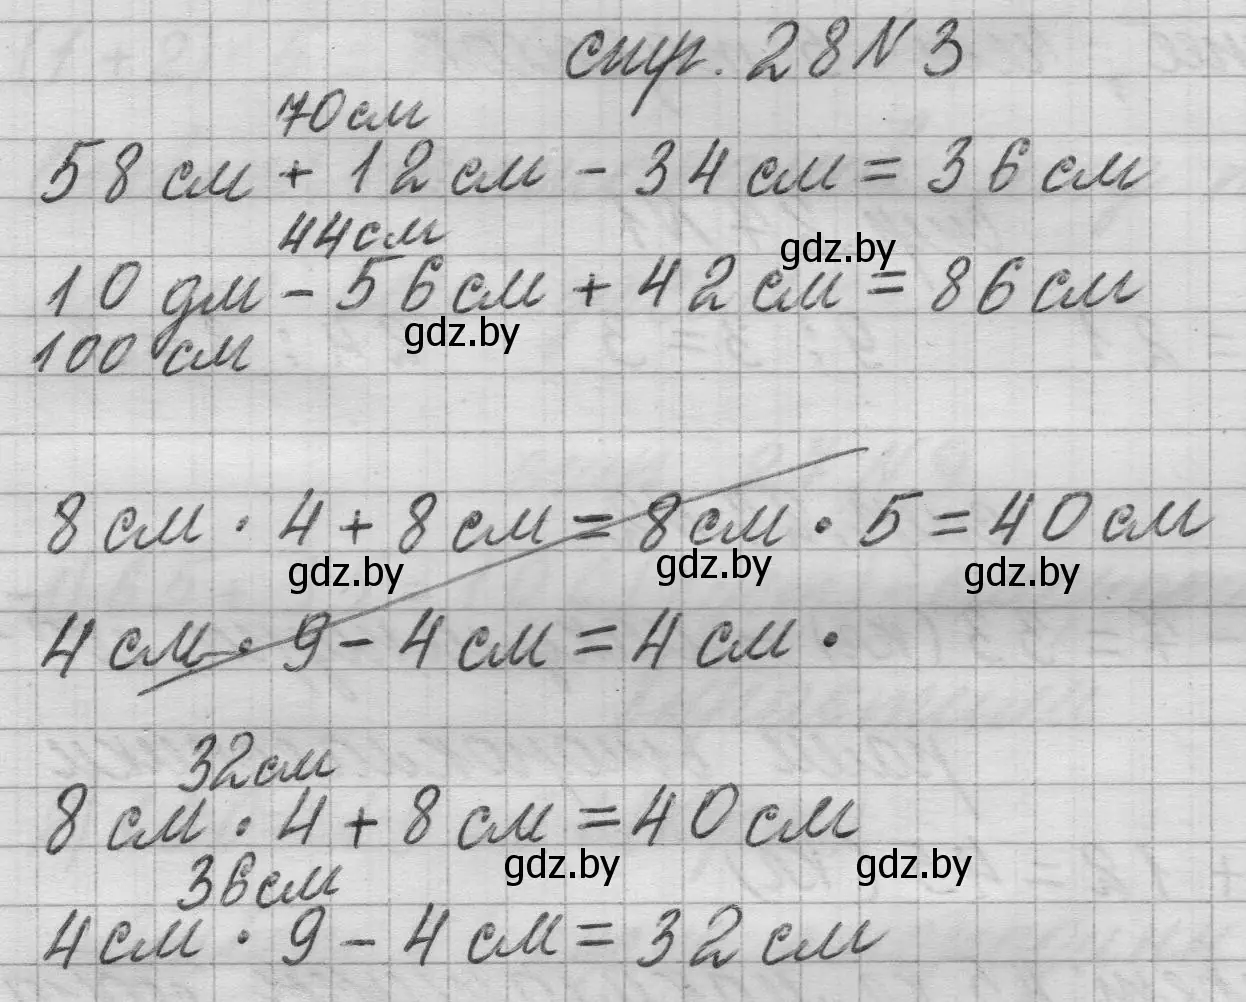 стр. 28 N 3
70 см
58 см + 12 см - 34 см = 36 см
44 см
gdz.by
10 дм - 56 см + 42 см = 86 см
gdz.by
100 см
8 см · 4 + 8 см = 8 см · 5 = 40 см
gdz.by gdz.by gdz.by
4 см · 9 - 4 см = 4 см ·
32 см
8 см · 4 + 8 см = 40 см
gdz.by gdz.by
36 см
4 см · 9 - 4 см = 32 см